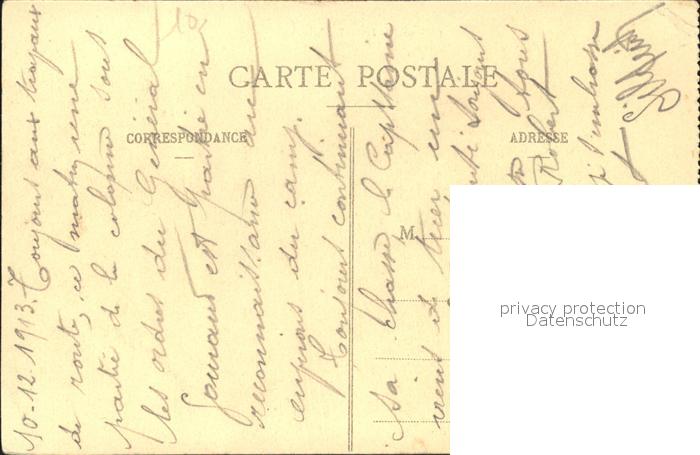 CARTE POSTALE
CORRESPONDANCE
ADRESSE
M
10-12-1913. Toujours aux travaux
de route, ce matin une
partie de la colonne sous
les ordres du Général
Gouraud est partie en
reconnaissance aux
environs du camp.
Toujours continuant
sa chasse le Capitaine
vient de tuer un
toujours
tous
Robert
j'embrasse
privacy protection
Datenschutz